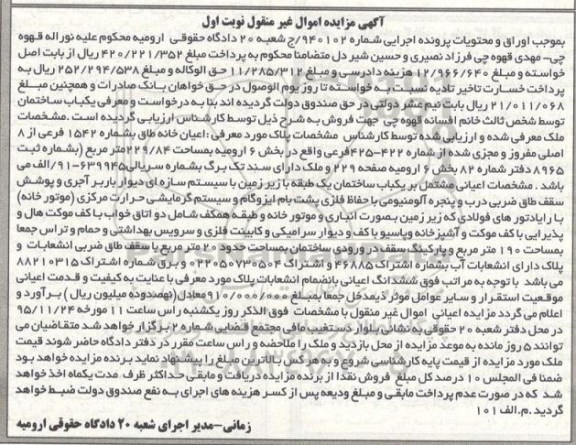 آگهی مزایده اموال غیر منقول نوبت اول
بموجب اوراق و محتویات پرونده اجرایی شماره ۹۴۰۱۰۲/ج شعبه ۲۰ دادگاه حقوقی ارومیه محکوم علیه نوراله قهوه
چی- مهدی قهوه چی فرزاد نصیری و حسین شیر دل متضامنا محکوم به پرداخت مبلغ ۴۲۰/۲۲۱/۳۵۲ ریال از بابت اصل
خواسته و مبلغ ۱۲/۹۶۶/۶۴۰ هزینه دادرسی و مبلغ ۱۱/۲۸۵/۳۱۲ حق الوکاله و مبلغ ۲۵۲/۲۹۴/۵۳۸ ریال به
پرداخت خسارت تاخیر تادیه نسبت به خواسته تا روز یوم الوصول در حق خواهان بانک صادرات و همچنین مبلغ
۲۱/۰۱۱/۰۶۸ ریال بابت نیم عشر دولتی در حق صندوق دولت گردیده اند بنا به درخواست و معرفی یکباب ساختمان
توسط شخص ثالث خانم افسانه قهوه چی جهت فروش به شرح ذیل توسط کارشناس ارزیابی گردیده است .مشخصات
ملک معرفی شده و ارزیابی شده توسط کارشناس مشخصات پلاک مورد معرفی :اعیان خانه طاق بشماره ۱۵۴۲ فرعی از ۸
اصلی مفروز و مجزی شده از شماره ۴۲۲-۴۲۵فرعی واقع در بخش ۶ ارومیه بمساحت ۲۲۹/۸۴متر مربع (بشماره ثبت
۸۹۶۵ دفتر شماره ۸۲ بخش ۶ ارومیه صفحه ۲۲۹ و ملک دارای سند تک برگ بشماره سریالی ۶۳۹۹۴۵-۹۱/الف می
باشد . مشخصات اعیانی مشتمل بر یکباب ساختمان یک طبقه با زیر زمین با سیستم سازه ای دیوار باربر آجری و پوشش
سقف طاق ضربی درب و پنجره آلومنیومی با حفاظ فلزی پشت بام ایزوگام و سیستم گرمایشی حرارت مرکزی (موتور خانه)
با رادیاتور های فولادی که زیر زمین بصورت انباری و موتور خانه و طبقه همکف شامل دو اتاق خواب با کف موکت هال و
پذیرایی با کف موکت و آشپزخانه وپاسیو با کف و دیوار سرامیکی و کابینت فلزی و سرویس بهداشتی و حمام و تراس جمعا
بمساحت ۱۹۰ متر مربع و پارکینگ سقف در ورودی ساختمان بمساحت حدود ۲۰ متر مربع با سقف طاق ضربی انشعابات و
پلاک دارای انشعابات آب بشماره اشتراک ۴۶۸۸۵ و اشتراک ۰۲۲۰۵۰۷۳۰۵۰۴ و برق شماره اشتراک ۸۸۲۱۰۳۱۵
می باشد با توجه به مراتب فوق ششدانگ اعیانی بانضمام انشعابات پلاک مورد معرفی با عنایت به کیفیت و قدمت اعیانی
موقعیت استقرار و سایر عوامل موثر ذیمدخل جمعا بمبلغ ۹۱۰/۰۰۰/۰۰۰معادل(نهصدوده میلیون ریال ) برآورد و
اعلام می گردد مزایده اعیانی اموال غیر منقول با مشخصات فوق الذکر روز یکشنبه راس ساعت ۱۱ مورخه ۹۵/۱۱/۲۴
در محل دفتر شعبه ۲۰ حقوقی به نشانی بلوار دستغیب مافی مجتمع قضایی شماره ۲ برگزار خواهد شد متقاضیان می
توانند ۵ روز مانده به موعد مزایده از محل بازدید و ملک را ملاحضه و راس ساعت مقرر در دفتر دادگاه حاضر شوند قیمت
ملک مورد مزایده از قیمت پایه کارشناسی شروع و به هر کس بالاترین مبلغ را پیشنهاد نماید برنده مزایده خواهد بود
ضمنا فی المجلس ۱۰ درصد کل مبلغ فروش نقدا از برنده مزایده دریافت و مابقی حداکثر ظرف مدت یکماه اخذ خواهد
شد که در صورت عدم پرداخت مابقی و مبلغ ودیعه پس از کسر هزینه های اجرای به نفع صندوق دولت ضبط خواهد
گردید .م.الف ۱۰۱
زمانی-مدیر اجرای شعبه ۲۰ دادگاه حقوقی ارومیه